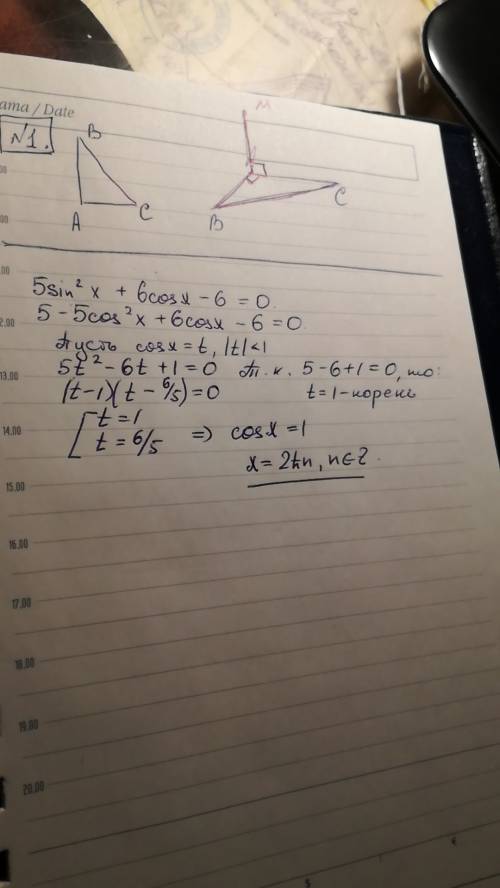 ama / Date
N1.
B
A
C
M
B
C
5sin²x + 6cosx - 6 = 0.
5 - 5cos²x + 6cosx - 6 = 0
Пусть cosx = t, |t| < 1
5t² - 6t + 1 = 0 т. к. 5 - 6 + 1 = 0, то:
(t - 1)(t - 6/5) = 0 t = 1 - корень
t = 1
t = 6/5 => cosx = 1
x = 2πn, n ∈ Z.
12.00
13.00
14.00
15.00
16.00
17.00
18.00
19.00
20.00